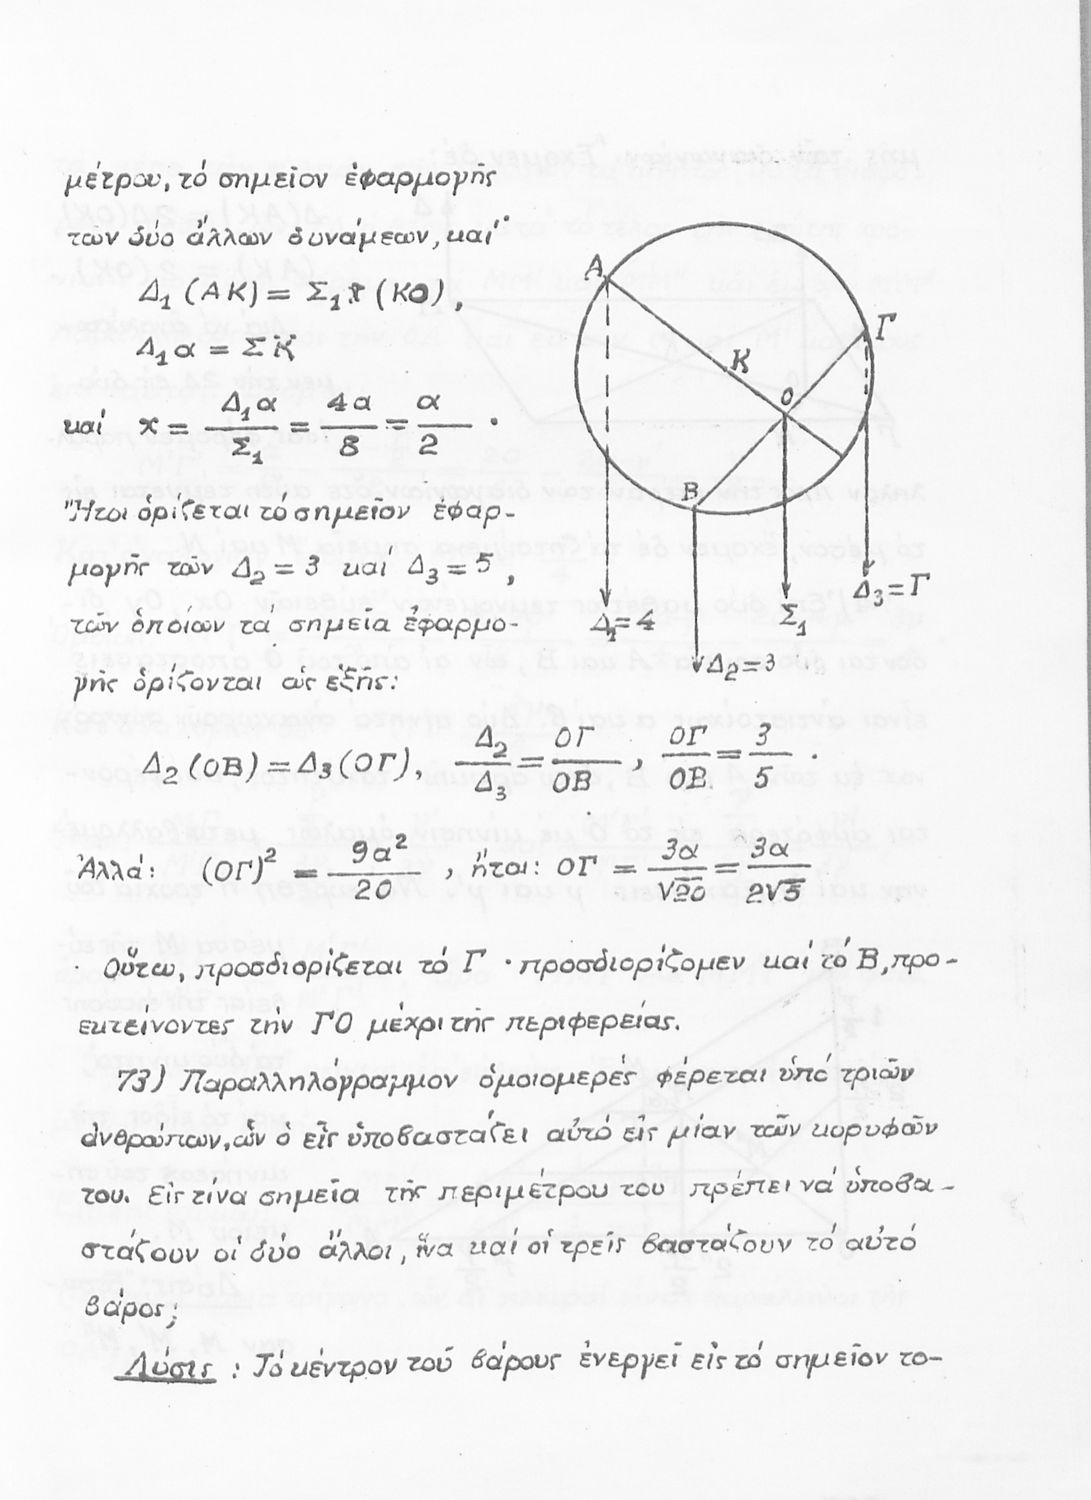 μέτρου, τό σημεῖον ἐφαρμογῆς
τῶν δύο ἄλλων δυνάμεων, καί·
Δ₁ (ΑΚ) = Σ₁ (ΚΟ),
Δ₁α = ΣX
καί x = Δ₁α/Σ₁ = 4α/8 = α/2 ·
Ἤτοι ὁρίζεται τό σημεῖον ἐφαρ-
μογῆς τῶν Δ₂ = 3 καί Δ₃ = 5,
τῶν ὁποίων τά σημεῖα ἐφαρμο-
γῆς ὁρίζονται ὡς ἑξῆς:
Α
Κ
Γ
Ο
Β
Δ₁ = 4
Σ₁
Δ₃ = Γ
Δ₂ = 3
Δ₂ (ΟΒ) = Δ₃ (ΟΓ), Δ₂/Δ₃ = ΟΓ/ΟΒ, ΟΓ/ΟΒ = 3/5 ·
Ἀλλά: (ΟΓ)² = 9α²/20, ἤτοι: ΟΓ = 3α/√20 = 3α/2√5
Οὕτω, προσδιορίζεται τό Γ · προσδιορίζομεν καί τό Β, προ-
εκτείνοντες τήν ΓΟ μέχρι τῆς περιφερείας.
73) Παραλληλόγραμμον ὁμοιομερές φέρεται ὑπό τριῶν
ἀνθρώπων, ὧν ὁ εἷς ὑποβαστάζει αὐτό εἰς μίαν τῶν κορυφῶν
του. Εἰς τίνα σημεῖα τῆς περιμέτρου του πρέπει νά ὑποβα-
στάζουν οἱ δύο ἄλλοι, ἵνα καί οἱ τρεῖς βαστάζουν τό αὐτό
βάρος;
Λύσις: Τό κέντρον τοῦ βάρους ἐνεργεῖ εἰς τό σημεῖον το-